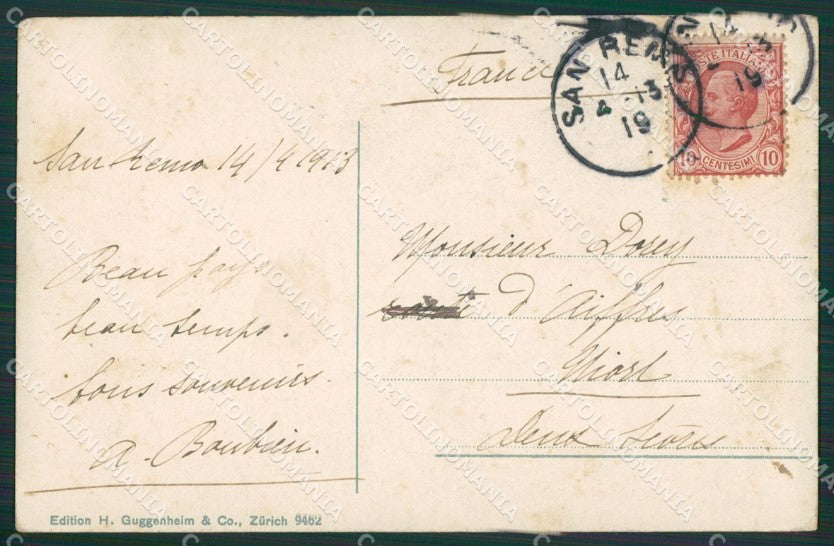 France
SAN REMO
14
4 13
19
POSTE ITALIANE
10 CENTESIMI 10
San Remo 14/4 1913
Beau pays
beau temps.
bons souvenirs.
A. Boubien.
Monsieur Dorey
route d'Aiffres
Niort
Deux Sèvres
Edition H. Guggenheim & Co., Zürich 9462
CARTOLINOMANIA